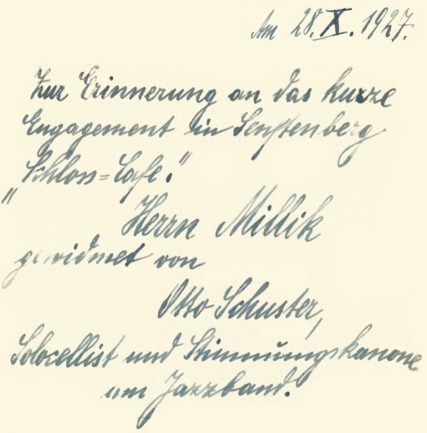 Am 28.X.1927.
Zur Erinnerung an das kurze
Engagement in Senftenberg
„Schloss=Cafe."
Herrn Millik
gewidmet von
Otto Schuster,
Solocellist und Stimmungskanone
am Jazzband.